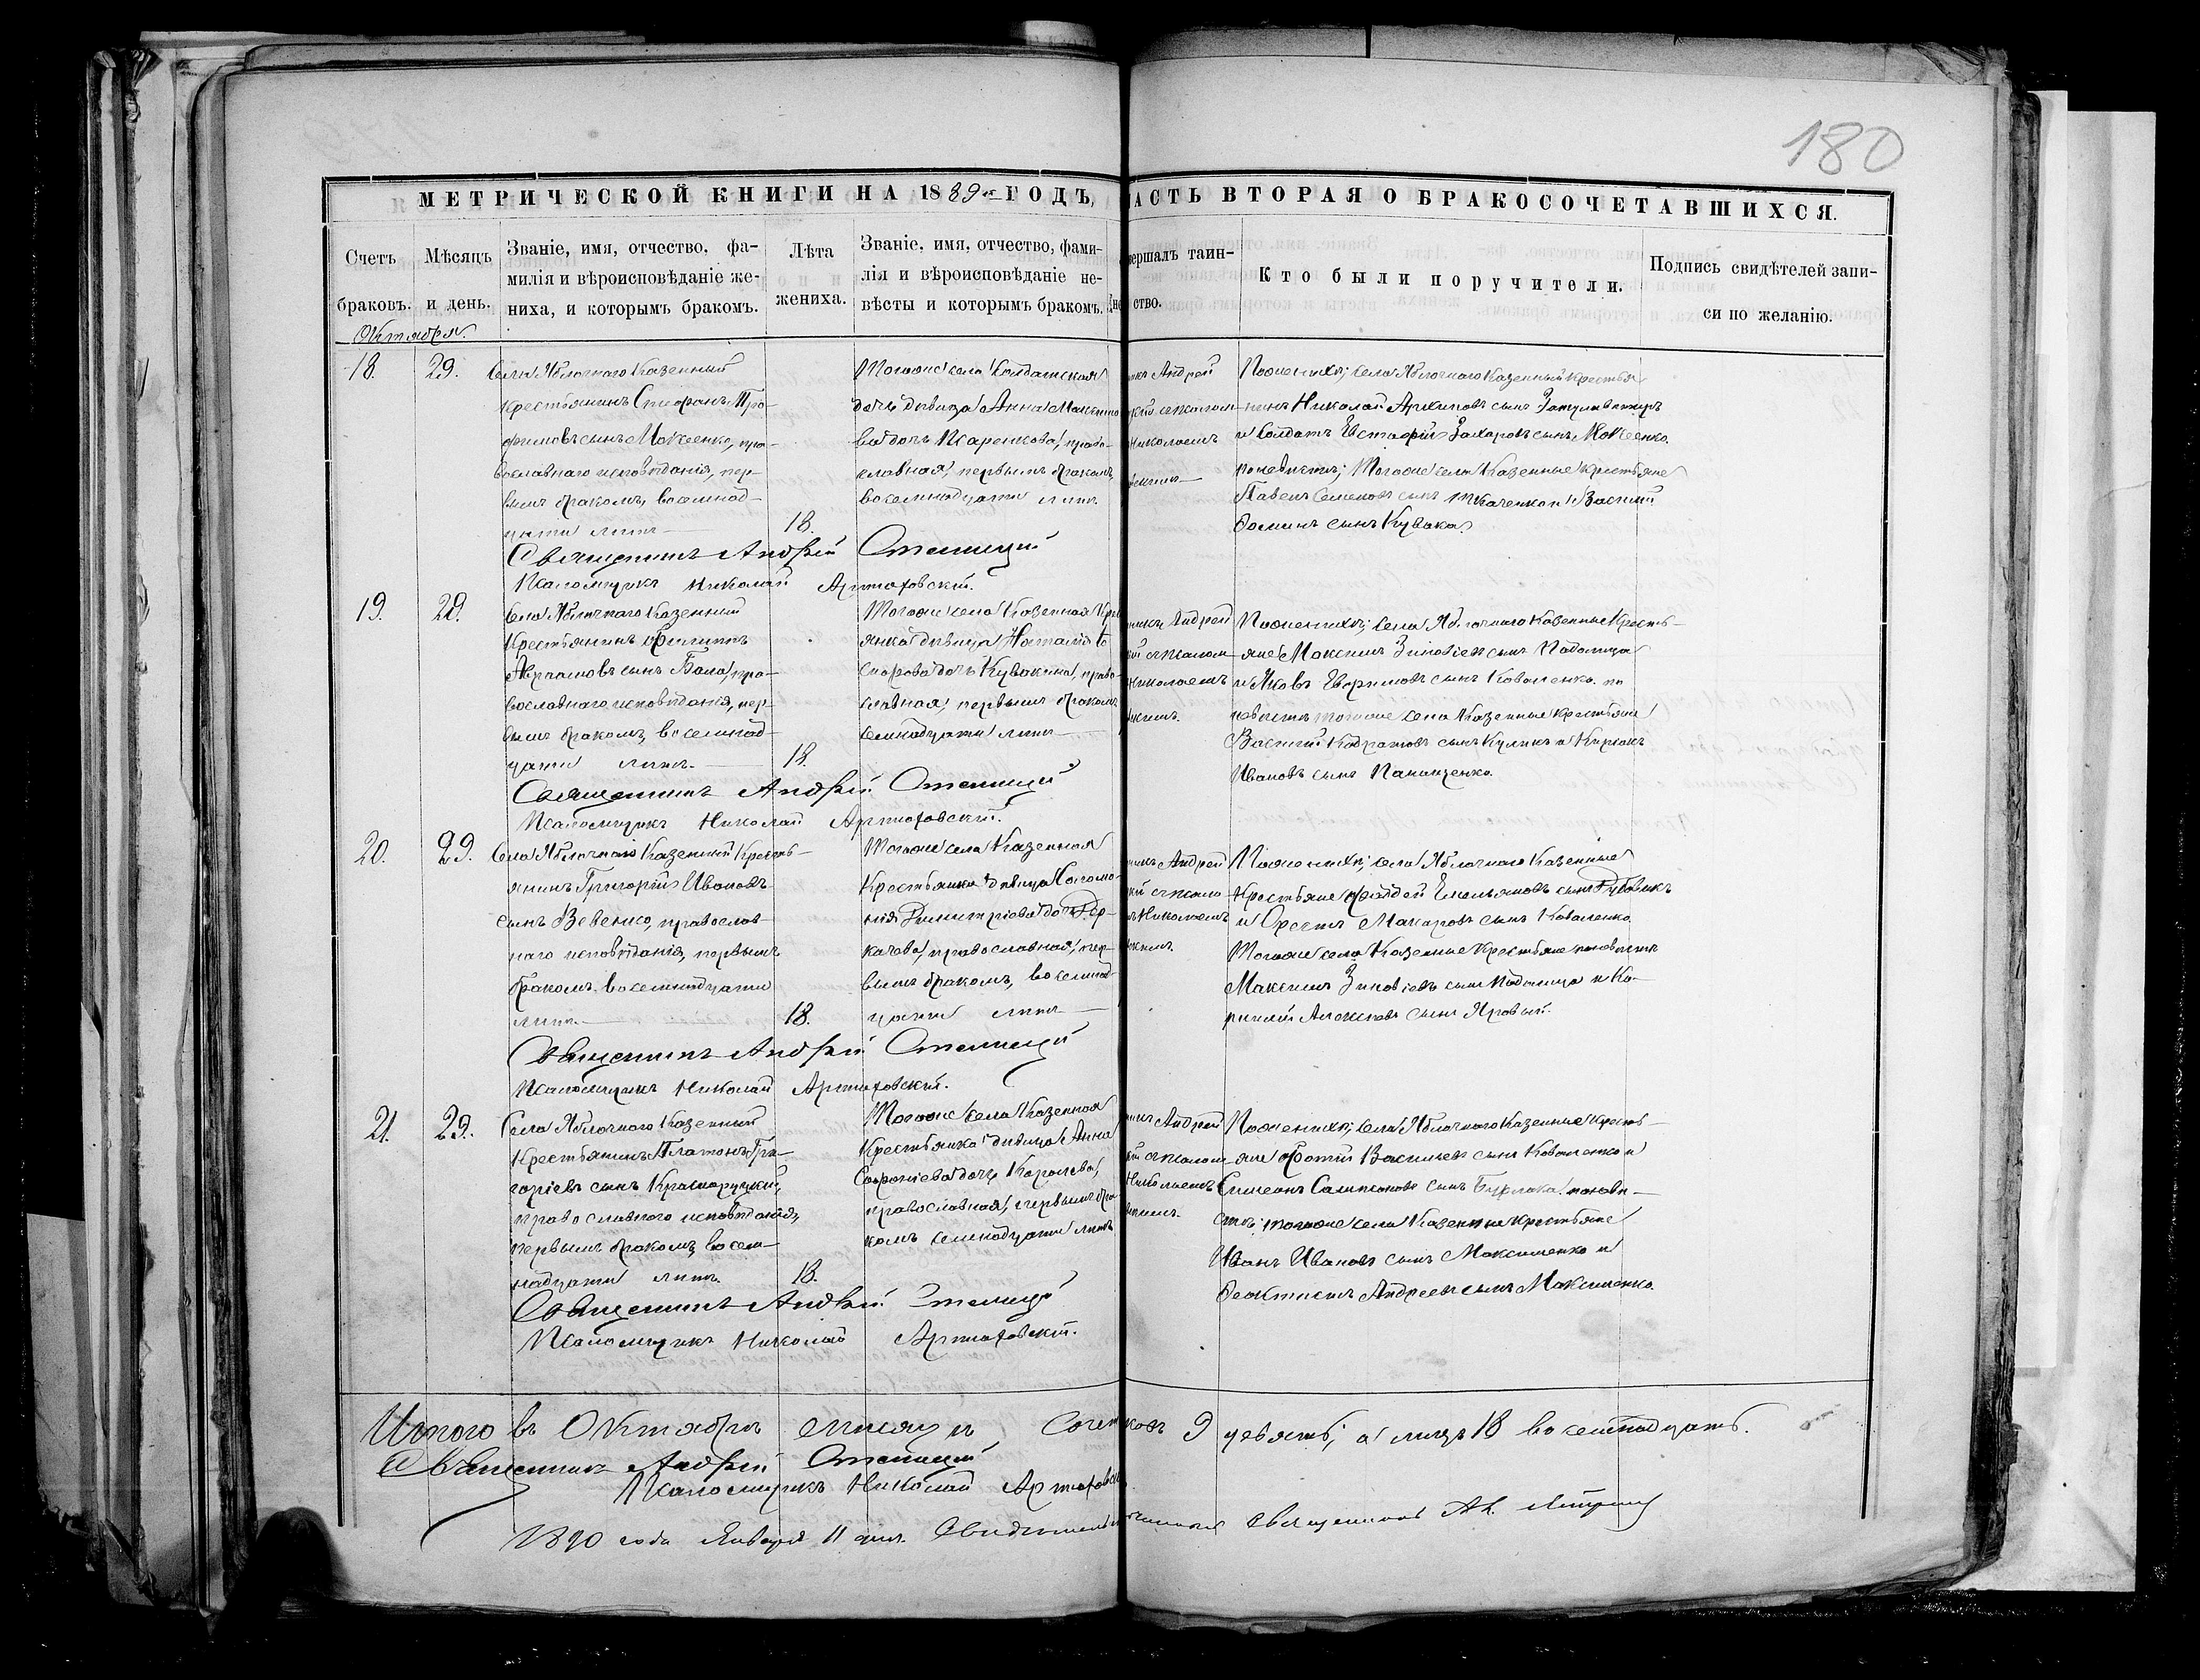 180
МЕТРИЧЕСКОЙ КНИГИ НА 1889й ГОДЪ, АСТЬ ВТОРАЯ О БРАКОСОЧЕТАВШИХСЯ.
Счетъ браковъ.
Мѣсяцъ и день.
Званіе, имя, отчество, фа-
милія и вѣроисповѣданіе же-
ниха, и которымъ бракомъ.
Лѣта
жениха.
Званіе, имя, отчество, фами-
лія и вѣроисповѣданіе не-
вѣсты и которымъ бракомъ.
вершалъ таин-
ство.
Кто были поручители.
Подпись свидѣтелей запи-
си по желанію.
Октября.
18.
29.
Села Яблочнаго Казенный
крестьянинъ Стефанъ Тро-
фимовъ сынъ Мокеенко, пра-
вославнаго исповѣданія, пер-
вымъ бракомъ, восемнад-
цати лѣтъ
18.
Тогоже села Солдатская
дочь дѣвица Анна Максимо
ва дочь Псаренкова, право-
славная, первымъ бракомъ,
восемнадцати лѣтъ.
икъ Андрей
кій с псалом-
Николаемъ
Поженихѣ; села Яблочнаго Казенный крестья-
нинъ Николай Архиповъ сынъ
и Солдатъ Евстафій Захаровъ сынъ Мокеенко.
поневѣстѣ; Тогоже села Казенные крестьяне
Павелъ Семеновъ сынъ Ткаченко и Василій
сынъ Кувака.
Священникъ Андрей
Псаломщикъ Николай Артюховскій.
19.
29.
Села Яблочнаго Казенный
Крестьянинъ Филиппъ
Авраамовъ сынъ Бала, пра-
вославнаго исповѣданія, пер-
вымъ бракомъ, восемнад-
цати лѣтъ.
18.
Тогоже села Казенная Кре
янка дѣвица Наталія
дочь Кувакина, право-
славная, первымъ бракомъ
семнадцати лѣтъ
никъ Андрей
кій с псалом-
Николаемъ
Поженихѣ; села Яблочнаго Казенные Кресть-
яне Максимъ Зиновіевъ сынъ Падалица
и Яковъ Ефримовъ сынъ Коваленко. по
невѣстѣ тогоже села Казенные Крестьяне
Василій Кодратовъ сынъ Куликъ и Кирьякъ
Ивановъ сынъ
Священникъ Андрей
Псаломщикъ Николай Артюховскій.
20.
29.
Села Яблочнаго Казенный Кресть-
янинъ Григорій Ивановъ
сынъ Вевенко, православ-
наго исповѣданія, первымъ
бракомъ, восемнадцати
лѣтъ.
18.
Тогоже села Казенная
Крестьянка дѣвица Соломо-
нія Димитріева дочь Дер-
качева, православная, пер-
вымъ бракомъ, восемнад-
цати лѣтъ
никъ Андрей
Николаемъ
Поженихѣ; села Яблочнаго Казенные
Крестьяне Фаддей Емельяновъ сынъ Рубовикъ
и Орестъ Макаровъ сынъ Коваленко.
Тогоже села Казенные Крестьяне поневѣстѣ
Максимъ Зиновіевъ сынъ Падалица и Ко-
рнилій Алексѣевъ сынъ Яровый.
Священникъ Андрей
Псаломщикъ Николай Артюховскій.
21.
29.
Села Яблочнаго Казенный
Крестьянинъ Платонъ Гри-
горіевъ сынъ Краснорудкій,
православнаго исповѣданія,
первымъ бракомъ, восем-
надцати лѣтъ.
18.
Тогоже села Казенная
Крестьянка дѣвица Анна
Софроніева дочь Королева,
православная, первымъ бра-
комъ семнадцати лѣтъ
никъ Андрей
кій с псалом-
Николаемъ
Поженихѣ; села Яблочнаго Казенные Кресть-
яне Фотій Васильевъ сынъ Коваленко и
Симеонъ сынъ Бурлака. поневѣ-
стѣ; тогоже села Казенные крестьяне
Иванъ Ивановъ сынъ Максименко и
Феоктистъ Андреевъ сынъ Максименко.
Священникъ Андрей
Псаломщикъ Николай Артюховскій.
Итого въ Октябрѣ мѣсяцѣ Сочет ковъ 9 девять, а лицъ 18 восемнадцать.
Священникъ Андрей
Псаломщикъ Николай Артюховск
1890 года Января 11 дня. священникъ